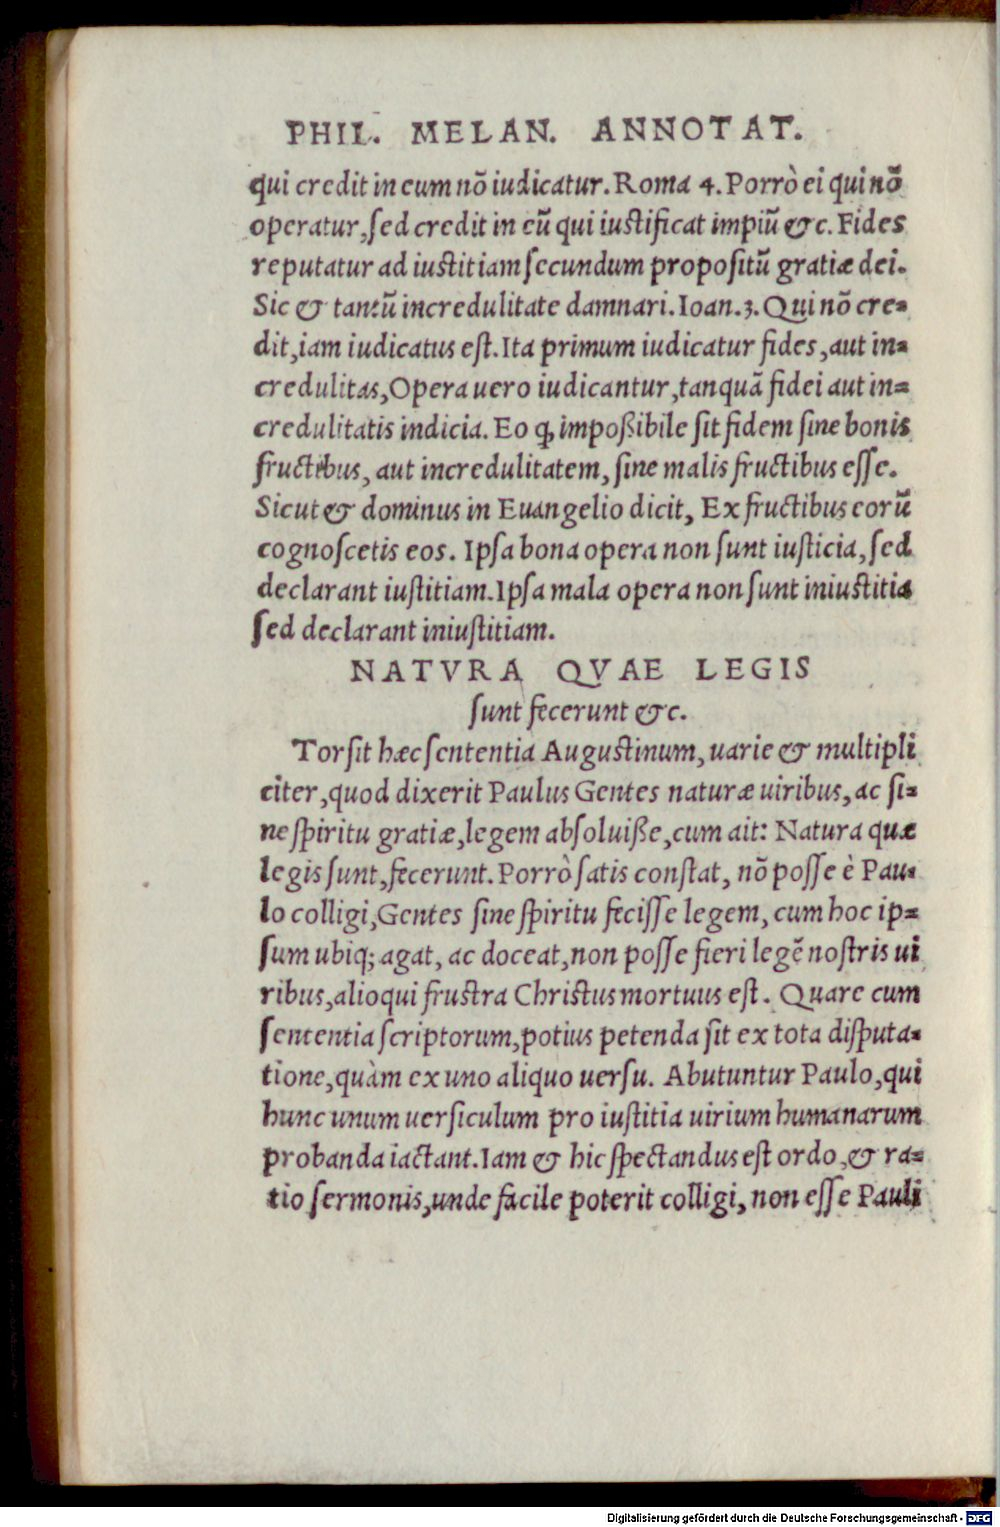 PHIL. MELAN. ANNOTAT.
qui credit in eum nõ iudicatur. Roma 4. Porrò ei qui nõ
operatur, ſed credit in eũ qui iuſtificat impiũ &c. Fides
reputatur ad iuſtitiam ſecundum propoſitũ gratiæ dei.
Sic & tantũ incredulitate damnari. Ioan. 3. Qui nõ cre=
dit, iam iudicatus eſt. Ita primum iudicatur fides, aut in=
credulitas, Opera uero iudicantur, tanquã fidei aut in=
credulitatis indicia. Eo ꝙ impoßibile ſit fidem ſine bonis
fructibus, aut incredulitatem, ſine malis fructibus eſſe.
Sicut & dominus in Euangelio dicit, Ex fructibus eorũ
cognoſcetis eos. Ipſa bona opera non ſunt iuſticia, ſed
declarant iuſtitiam. Ipſa mala opera non ſunt iniuſtitia
ſed declarant iniuſtitiam.
NATVRA QVAE LEGIS
ſunt fecerunt &c.
Torſit hæc ſententia Auguſtinum, uarie & multipli
citer, quod dixerit Paulus Gentes naturæ uiribus, ac ſi=
ne ſpiritu gratiæ, legem abſoluiße, cum ait: Natura quæ
legis ſunt, fecerunt. Porrò ſatis conſtat, nõ poſſe è Pau=
lo colligi, Gentes ſine ſpiritu feciſſe legem, cum hoc ip=
ſum ubiq; agat, ac doceat, non poſſe fieri legẽ noſtris ui
ribus, alioqui fruſtra Chriſtus mortuus eſt. Quare cum
ſententia ſcriptorum, potius petenda ſit ex tota diſputa=
tione, quàm ex uno aliquo uerſu. Abutuntur Paulo, qui
hunc unum uerſiculum pro iuſtitia uirium humanarum
probanda iactant. Iam & hic ſpectandus eſt ordo, & ra=
tio ſermonis, unde facile poterit colligi, non eſſe Pauli
Digitalisierung gefördert durch die Deutsche Forschungsgemeinschaft - DFG